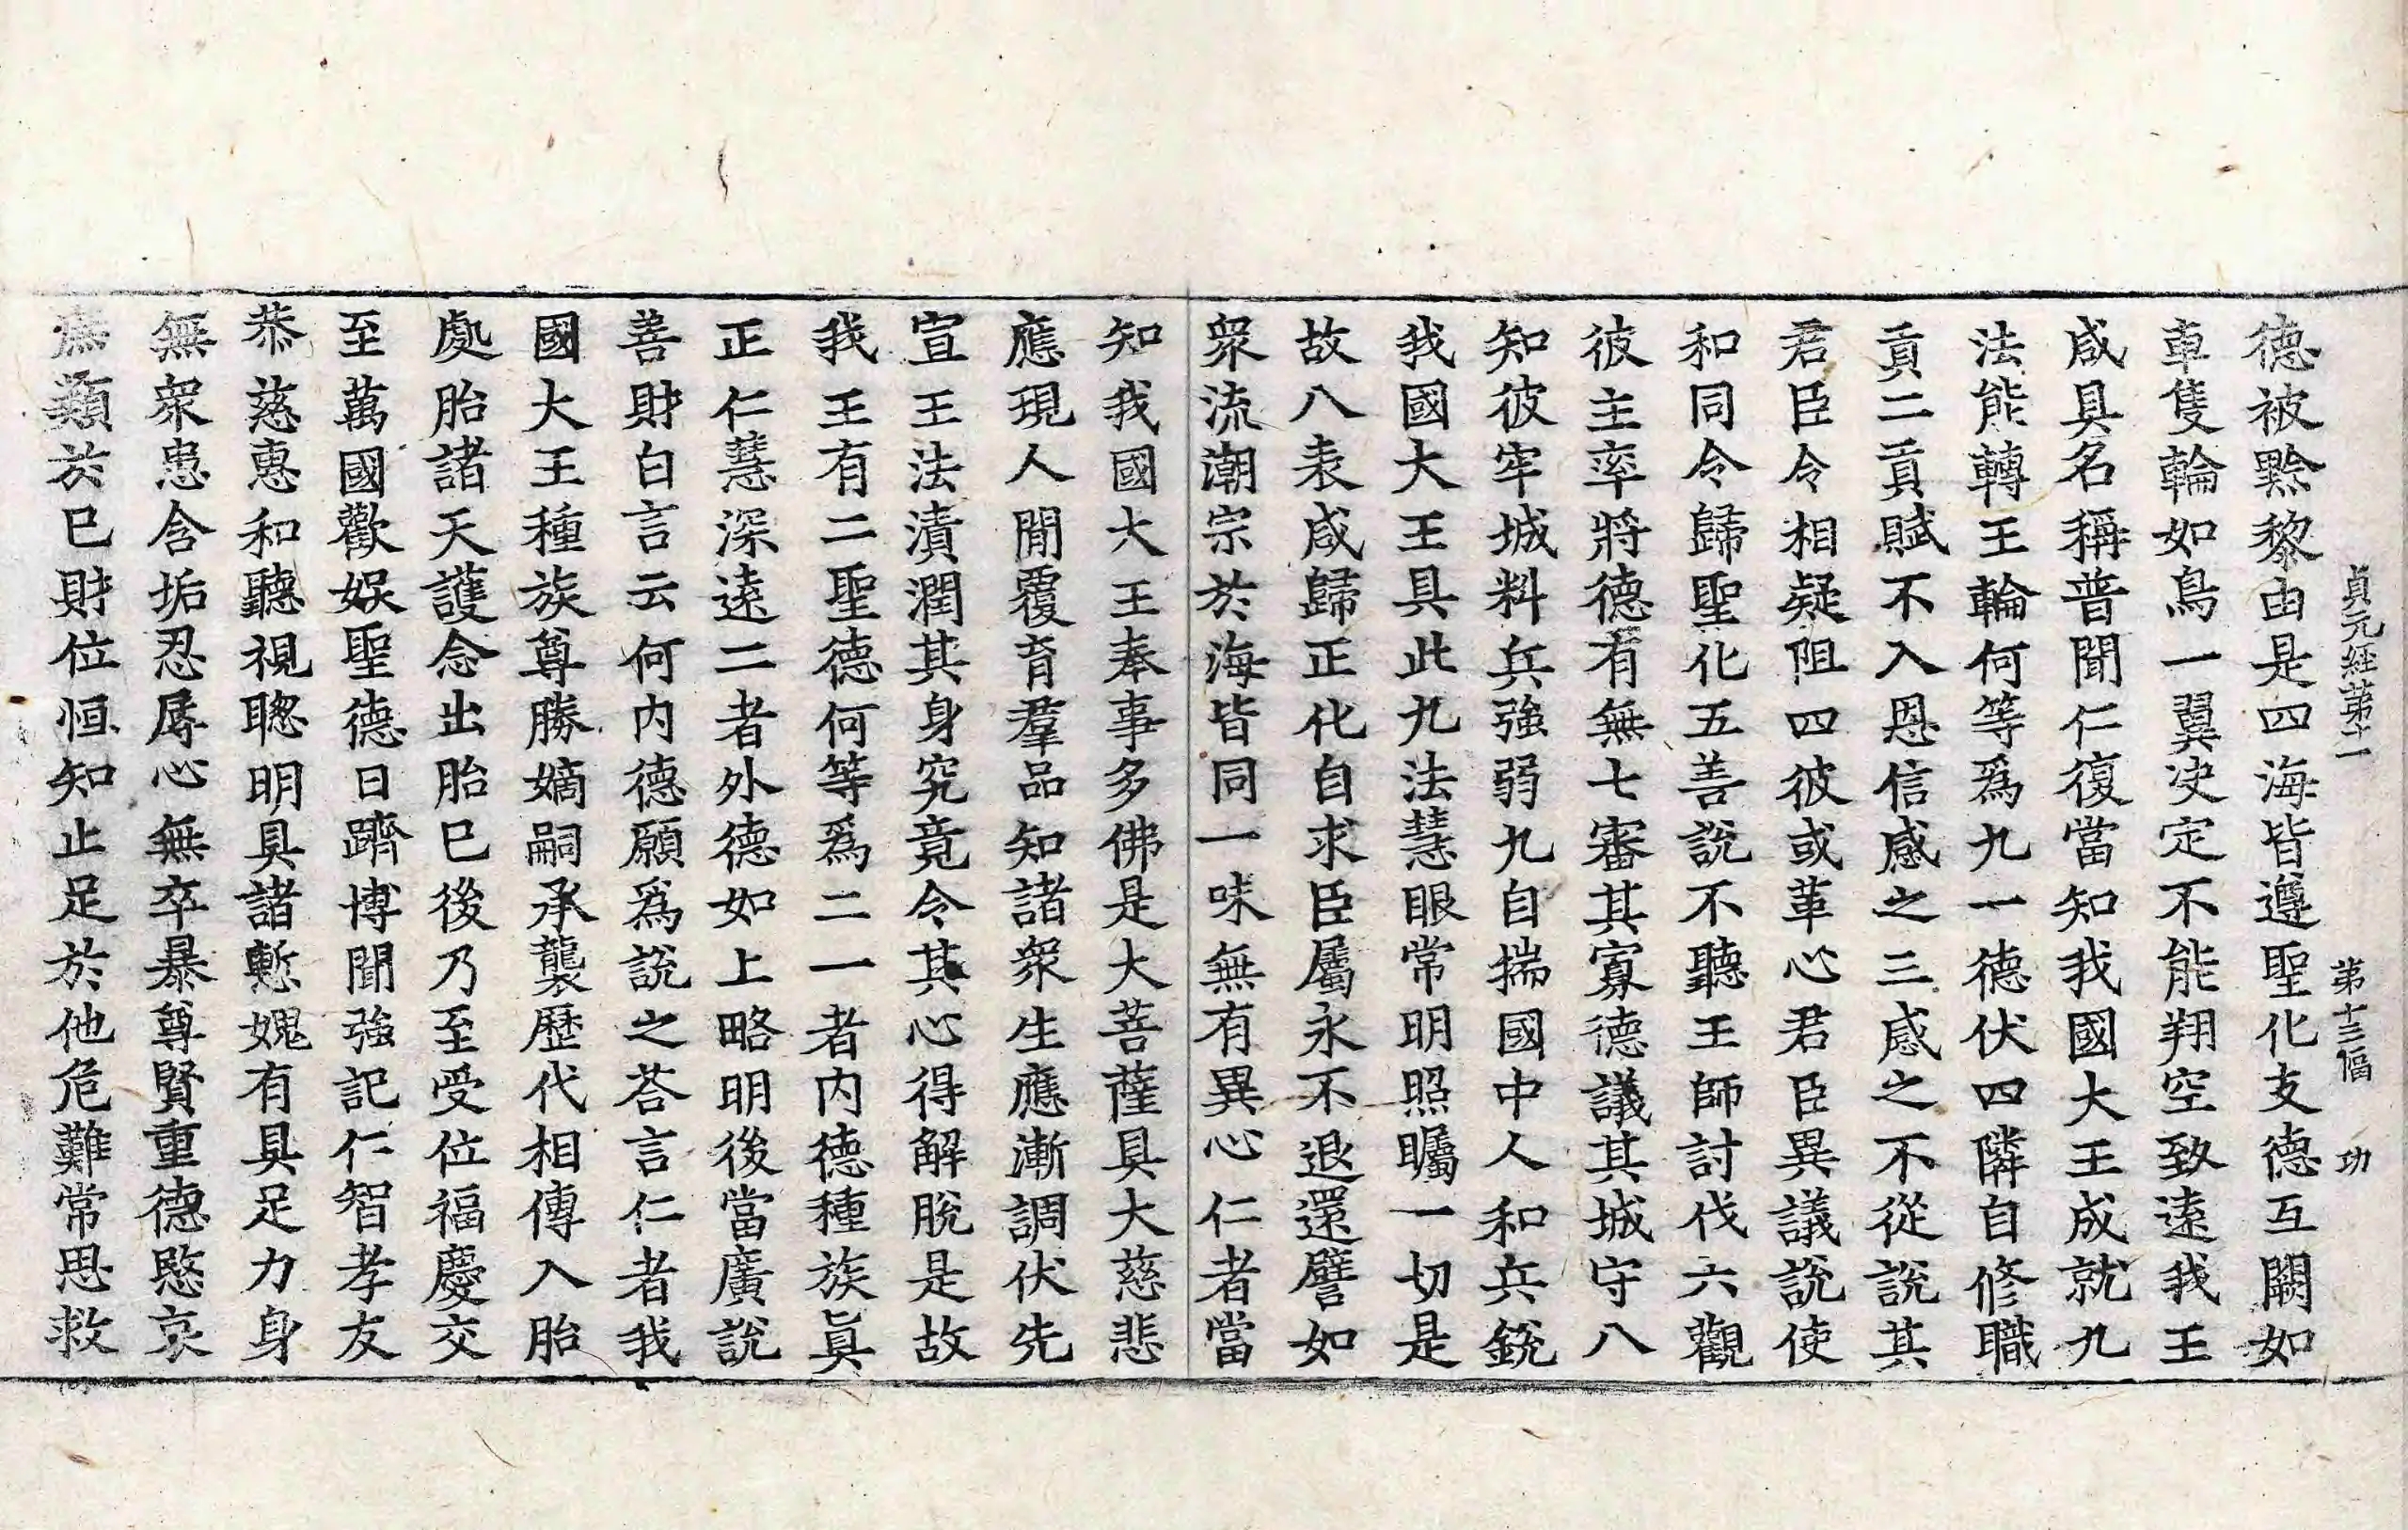 貞元経第十一　第十三幅　功
德被黔黎由是四海皆遵聖化支德互闕如
車隻輪如鳥一翼决定不能翔空致遠我王
咸具名稱普聞仁復當知我國大王成就九
法能轉王輪何等爲九一德伏四隣自修職
貢二貢賦不入恩信感之三感之不從說其
君臣令相疑阻四彼或革心君臣異議說使
和同令歸聖化五善說不聽王師討伐六觀
彼主率將德有無七審其寡德議其城守八
知彼牢城料兵強弱九自揣國中人和兵銳
我國大王具此九法慧眼常明照矚一切是
故八表咸歸正化自求臣屬永不退還譬如
衆流潮宗於海皆同一味無有異心仁者當
知我國大王奉事多佛是大菩薩具大慈悲
應現人間覆育羣品知諸衆生應漸調伏先
宣王法漬潤其身究竟令其心得解脫是故
我王有二聖德何等爲二一者内德種族眞
正仁慧深遠二者外德如上略明後當廣說
善財白言云何内德願爲說之荅言仁者我
國大王種族尊勝嫡嗣承襲歷代相傳入胎
處胎諸天護念出胎巳後乃至受位福慶交
至萬國歡娛聖德日躋博聞強記仁智孝友
恭慈惠和聽視聰明具諸慙媿有具足力身
無衆患含垢忍辱心無卒暴尊賢重德愍哀
庶類於巳財位恒知止足於他危難常思救